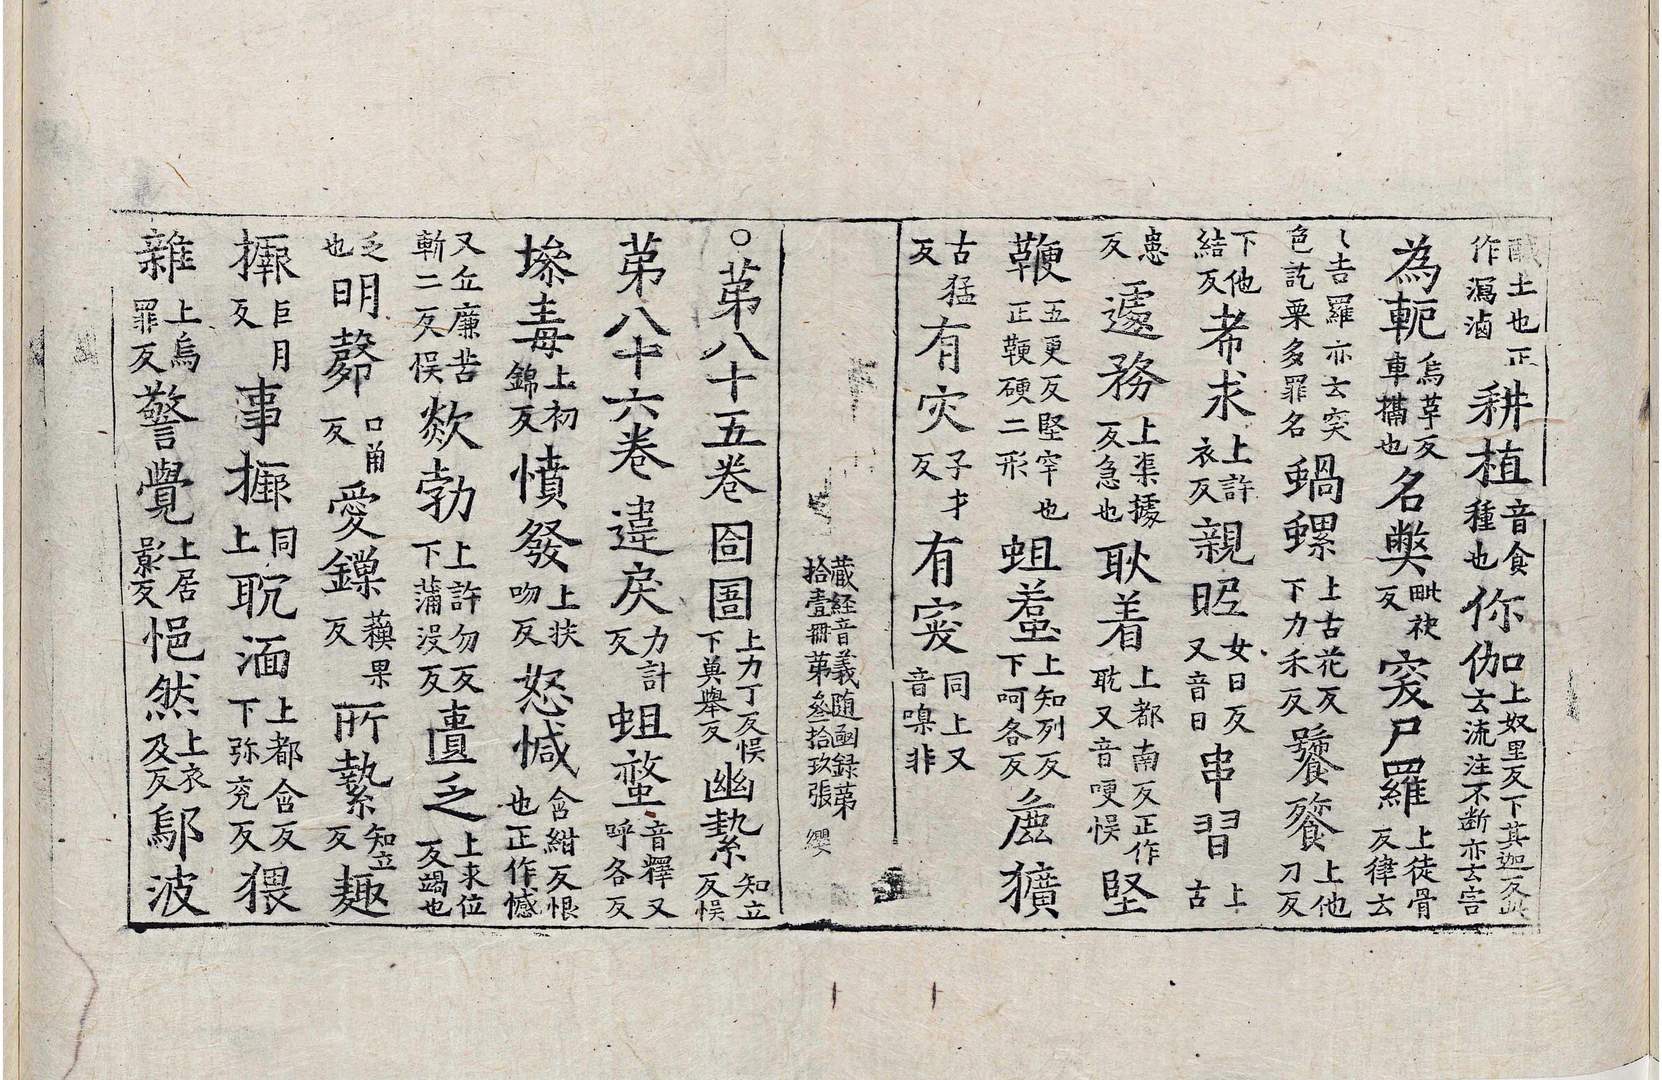 醎土也正作澙滷耕植音食種也你伽上奴里反下其迦反此云流注不断亦云害
為軛烏革反車槅也名弊毗袂反窣尸羅上徒骨反律云
〻吉羅亦云突色訖栗多罪名蝸螺上古花反下力禾反饕餮上他刀反
下他結反希求上許衣反親昵女日反又音日串習上古
患反遽務上渠據反急也耽着上都南反正作耽又音哽悮堅
鞕五更反堅牢也正鞕硬二形蛆䘍上知列反下呵各反麁獷
古猛反有灾子才反有㝥同上又音嗅非
蔵経音義随函録第拾壹冊第叄拾玖張 纓
○第八十五卷囹圄上力丁反悮下奠舉反幽縶知立反悮
第八十六卷違戾力計反蛆螫音釋又呼各反
墋毒上初錦反憤發上扶吻反怒憾含紺反恨也正作憾
又丘廉苦斬二反悮歘勃上許勿反下蒲没反匱乏上求位反竭也
乏也明㲉口角反愛鏁蘓果反所縶知立反趣
㧕巨月反事㧕同上耽湎上都含反下弥兖反猥
雜上烏罪反警覺上居影反悒然上衣及反鄔波